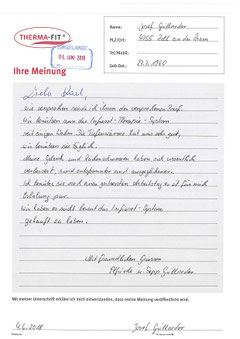 THERMA-FIT®
EINGELANGT
04. JUNI 2018
Name: Josef Gülleoder
PLZ/Ort: 4755 Zell an der Pram
Tel/Mobil:
Geb. Dat.: 1960
Ihre Meinung
Liebe
wie versprochen sende ich Ihnen den versprochenen Brief.
Wir benützen nun das Infrarot-Therapie-System
seit einigen Wochen. Die Tiefenwärme tut uns sehr gut,
wir benützen sie täglich.
Meine Gelenk und Rückenschmerzen haben sich wesentlich
verbessert, sind entspannter und ausgeglichener.
Ich benütze sie nach einem anstrengenden Arbeitstag es ist für mich
Erholung pur.
Wir haben es nicht bereut das Infrarot-System
gekauft zu haben.
Mit freundlichen Grüssen
Elfriede u. Sepp
Mit meiner Unterschrift erkläre ich mich einverstanden, dass meine Meinung veröffentlicht wird.
4.6.2018 Josef